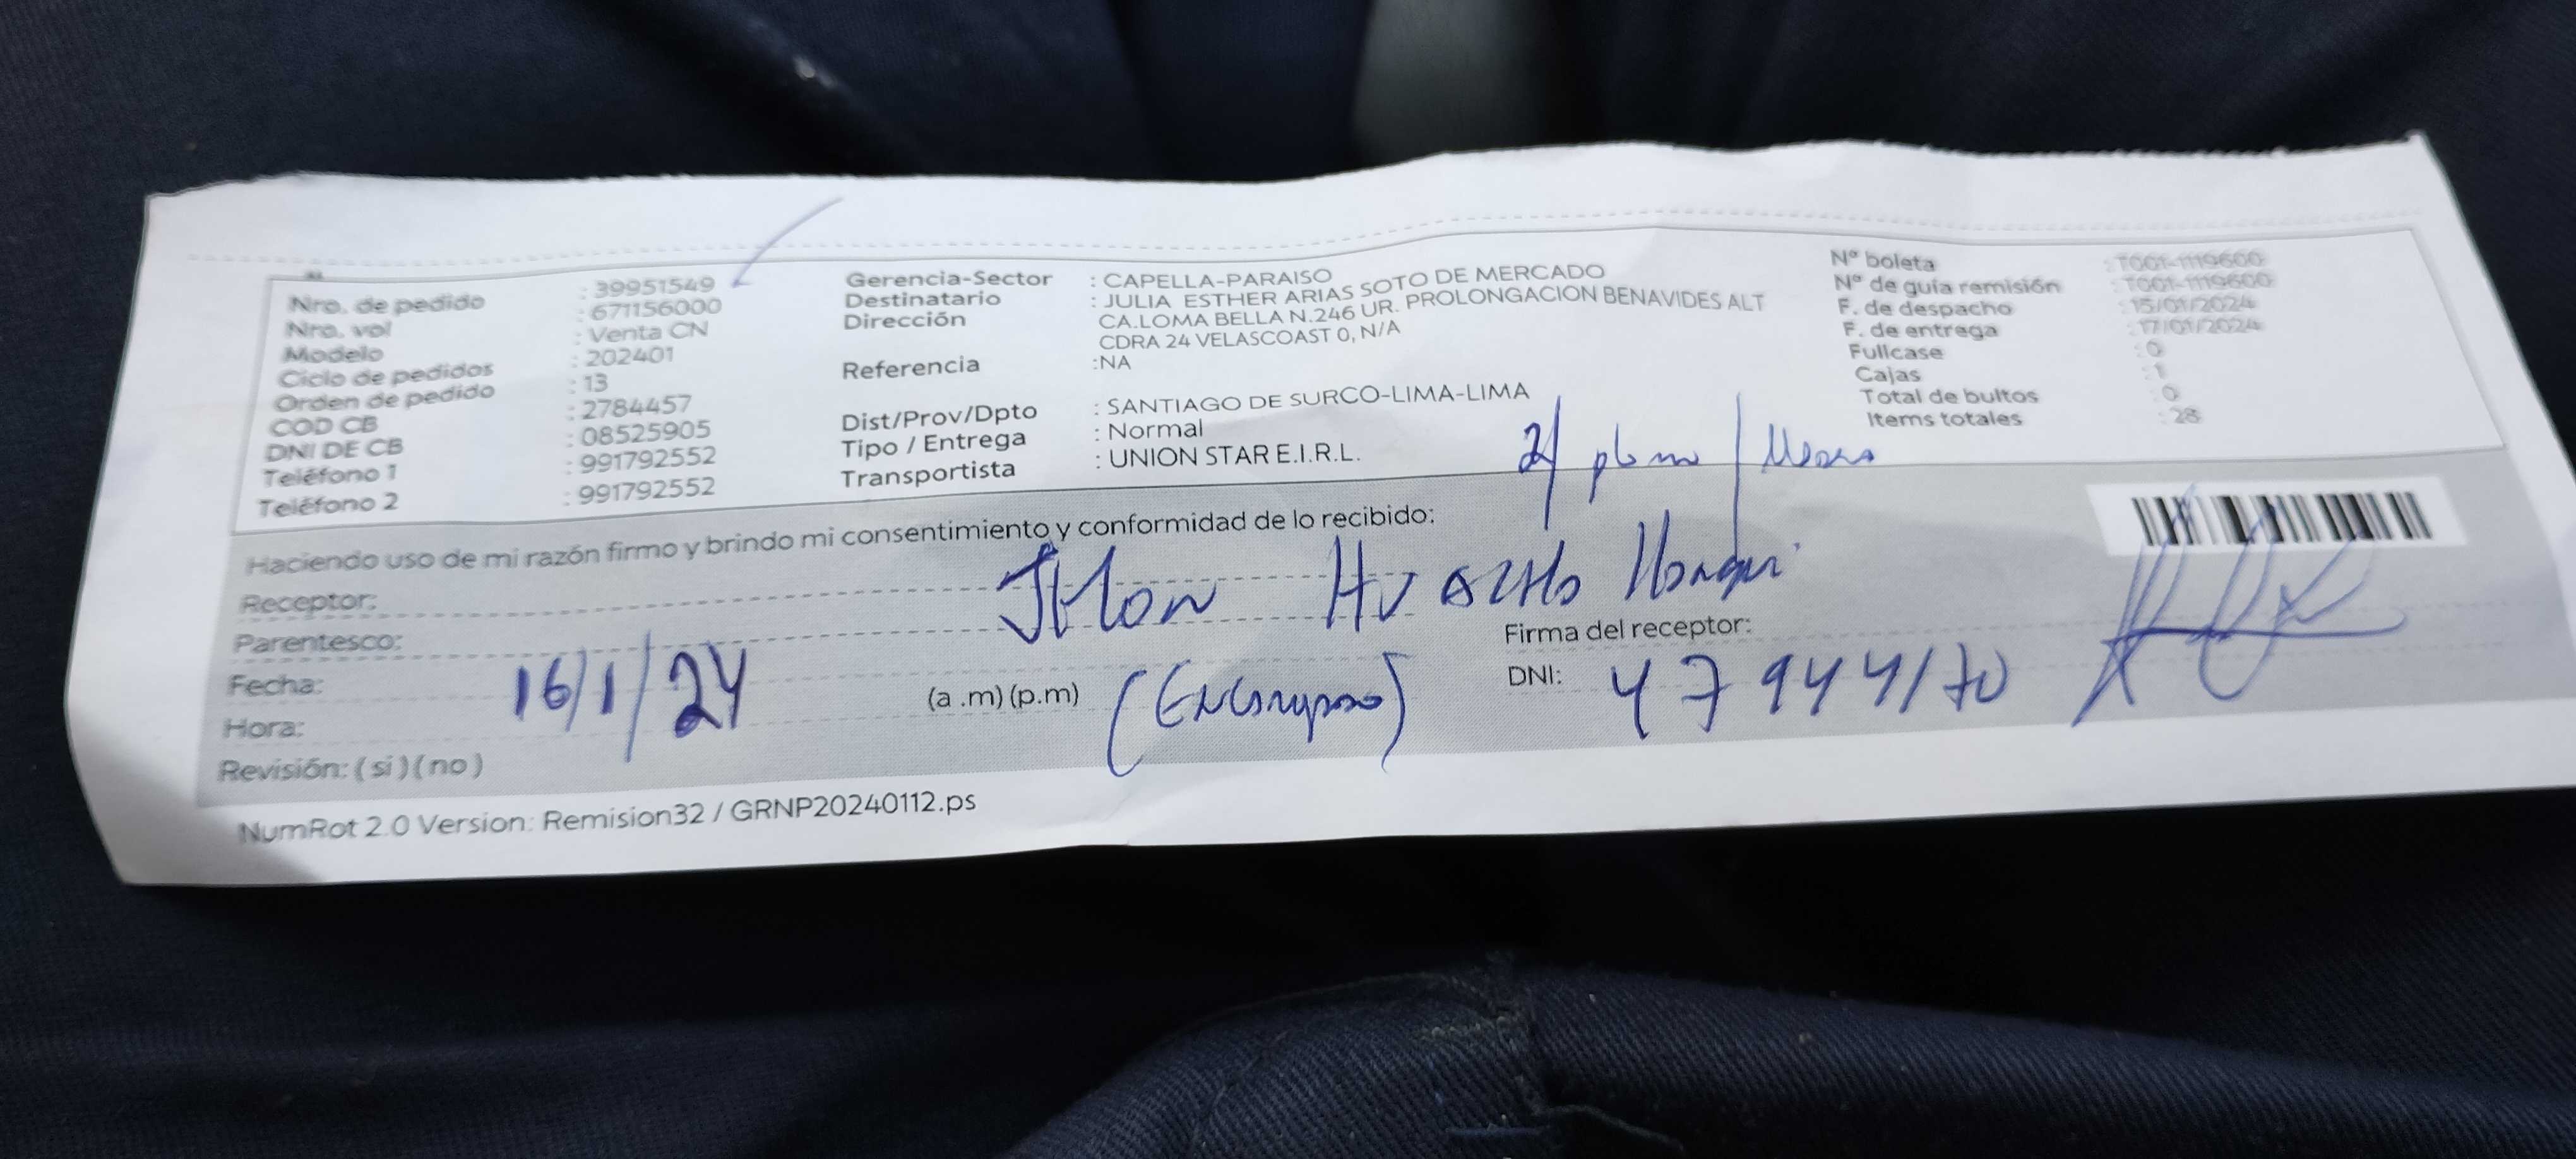 Nro. de pedido : 39951549
Nro. vol : 671156000
Modelo : Venta CN
Ciclo de pedidos : 202401
Orden de pedido : 13
COD CB : 2784457
DNI DE CB : 08525905
Teléfono 1 : 991792552
Teléfono 2 : 991792552
Gerencia-Sector : CAPELLA-PARAISO
Destinatario : JULIA ESTHER ARIAS SOTO DE MERCADO
Dirección CA.LOMA BELLA N.246 UR. PROLONGACION BENAVIDES ALT
CDRA 24 VELASCOAST 0, N/A
Referencia :NA
Dist/Prov/Dpto : SANTIAGO DE SURCO-LIMA-LIMA
Tipo / Entrega : Normal
Transportista : UNION STAR E.I.R.L.
Nº boleta : T001-1119600
Nº de guía remisión : T001-1119600
F. de despacho : 15/01/2024
F. de entrega : 17/01/2024
Fullcase : 0
Cajas : 1
Total de bultos : 0
Items totales : 28
2/
Haciendo uso de mi razón firmo y brindo mi consentimiento y conformidad de lo recibido:
Receptor: JHon
Parentesco:
Firma del receptor:
Fecha: 16/1/24
Hora: (a .m) (p.m)
DNI: 47944170
Revisión: ( si ) ( no )
NumRot 2.0 Version: Remision32 / GRNP20240112.ps